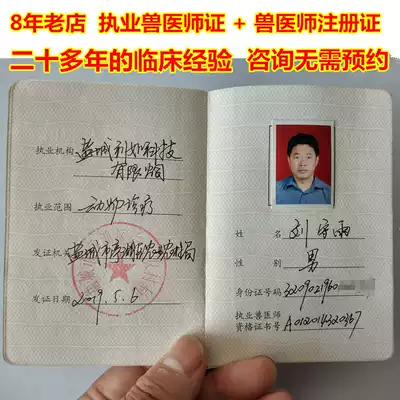 8年老店 执业兽医师证 + 兽医师注册证
二十多年的临床经验 咨询无需预约
执业机构 盐城
科技
有限公司
执业范围 动物诊疗
发证机关 盐城市亭湖区农业农村局
发证日期 2019.5.6
姓 名 刘守雨
性 别 男
身份证号码 3209021960
执业兽医师
资格证书号 A012014320367